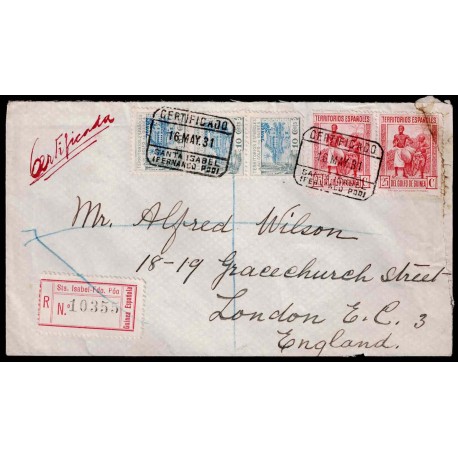 Certificada
CERTIFICADO
16 MAY. 31
SANTA ISABEL
(FERNANCO POO)
10
10
CERTIFICADO
16 MAY. 31
(FERNANCO POO)
TERRITORIOS ESPAÑOLES
TERRITORIOS ESPAÑOLES
25 DEL GOLFO DE GUINEA Cs
Mr. Alfred Wilson
18-19 Gracechurch Street
London E.C. 3
England.
Sta. Isabel-Fdo. Póo
R N.º 10355
Guinea Española